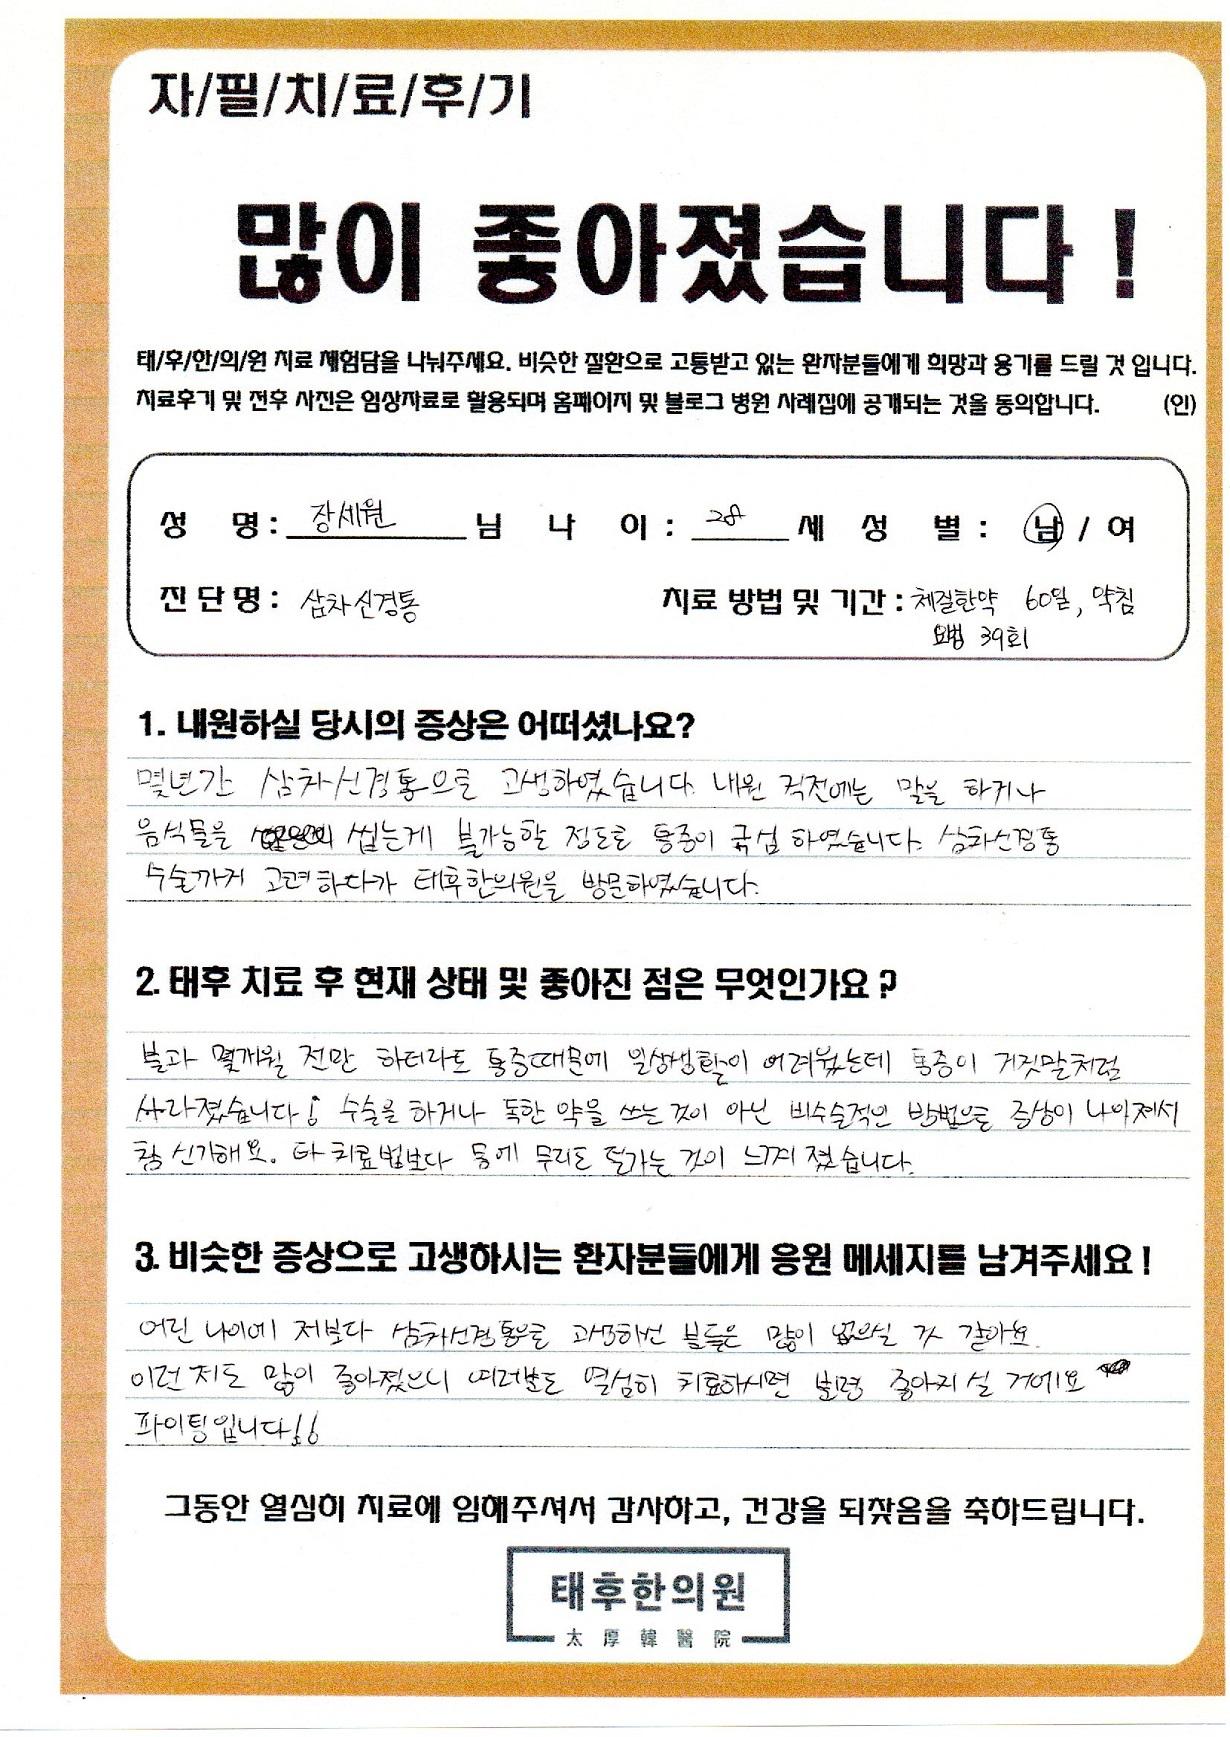 자/필/치/료/후/기
많이 좋아졌습니다!
태/후/한/의/원 치료 체험담을 나눠주세요. 비슷한 질환으로 고통받고 있는 환자분들에게 희망과 용기를 드릴 것 입니다.
치료후기 및 전후 사진은 임상자료로 활용되며 홈페이지 및 블로그 병원 사례집에 공개되는 것을 동의합니다. (인)
성 명 : 장세원 님 나 이 : 28 세 성 별 : 남 / 여
진단명 : 삼차신경통 치료 방법 및 기간 : 체질한약 60일, 약침
요법 39회
1. 내원하실 당시의 증상은 어떠셨나요?
몇년간 삼차신경통으로 고생하였습니다. 내원 직전에는 말을 하거나
음식물을 씹는게 불가능할 정도로 통증이 극심 하였습니다. 삼차신경통
수술까지 고려하다가 태후한의원을 방문하였습니다.
2. 태후 치료 후 현재 상태 및 좋아진 점은 무엇인가요?
불과 몇개월 전만 하더라도 통증때문에 일상생활이 어려웠는데 통증이 거짓말처럼
사라졌습니다! 수술을 하거나 독한 약을 쓰는 것이 아닌 비수술적인 방법으로 증상이 나아져서
참 신기해요. 타 치료법보다 몸에 무리도 덜가는 것이 느껴졌습니다.
3. 비슷한 증상으로 고생하시는 환자분들에게 응원 메세지를 남겨주세요!
어린 나이에 저보다 삼차신경통으로 고생하신 분들은 많이 없으실 것 같아요.
이런 저도 많이 좋아졌으니 여러분도 열심히 치료하시면 분명 좋아지실 거에요
파이팅입니다!!
그동안 열심히 치료에 임해주셔서 감사하고, 건강을 되찾음을 축하드립니다.
태후한의원
太厚韓醫院